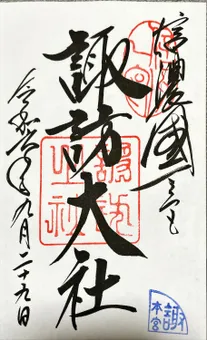 信濃國一之宮
諏訪大社
令和六年九月二十九日
諏
本宮